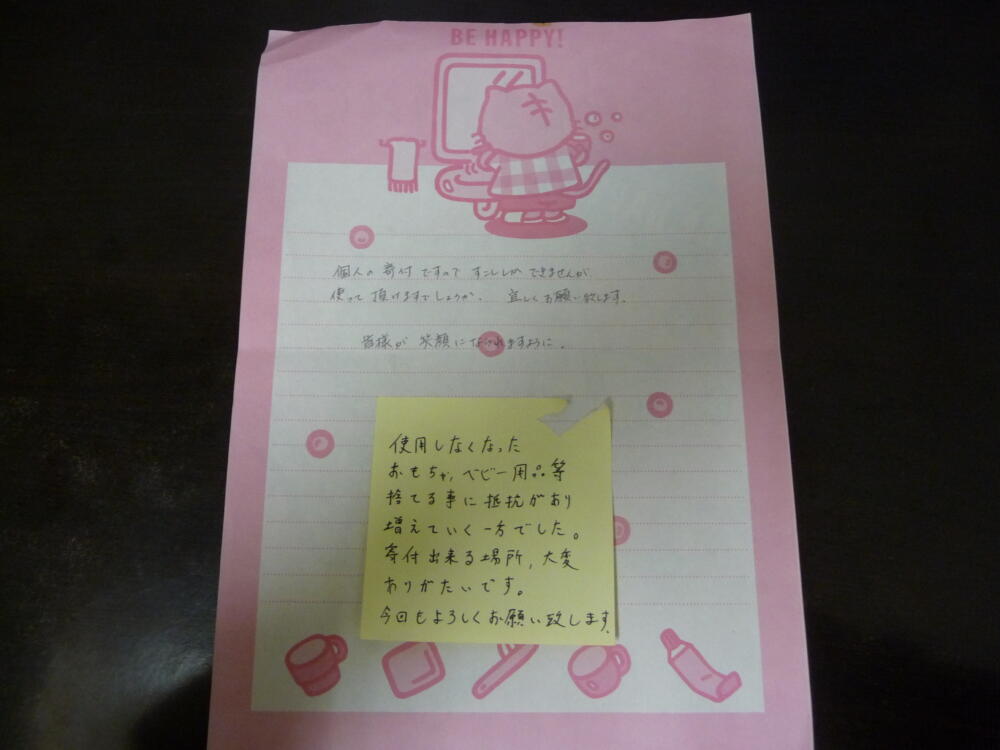 BE HAPPY!
個人の寄付ですので すこししかできませんが
使って頂けますでしょうか。 宜しくお願い致します。
皆様が笑顔になられますように。
使用しなくなった
おもちゃ,ベビー用品等
捨てる事に抵抗があり
増えていく一方でした。
寄付出来る場所,大変
ありがたいです。
今回もよろしくお願い致します.